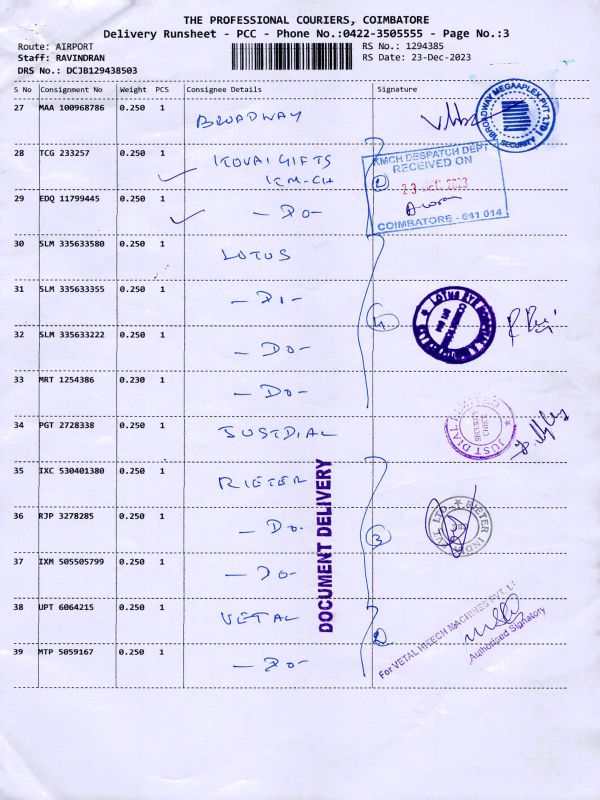 THE PROFESSIONAL COURIERS, COIMBATORE
Delivery Runsheet - PCC - Phone No.:0422-3505555 - Page No.:3
Route: AIRPORT RS No.: 1294385
Staff: RAVINDRAN RS Date: 23-Dec-2023
DRS No.: DCJB129438503
S No Consignment No Weight PCS Consignee Details Signature
27 MAA 100968786 0.250 1 BROADWAY
BROADWAY MEGAAPLEX PVT. LTD. SECURITY
28 TCG 233257 0.250 1 KOVAI GIFTS
KM-CH
KMCH DESPATCH DEPT
RECEIVED ON
23 DEC 2023
COIMBATORE - 641 014
2
29 EDQ 11799445 0.250 1 - DO -
30 SLM 335633580 0.250 1 LOTUS
31 SLM 335633355 0.250 1 - DO -
LOTUS EYE
4
32 SLM 335633222 0.250 1 - DO -
33 MRT 1254386 0.230 1 - DO -
34 PGT 2728338 0.250 1 JUSTDIAL
JUST DIAL LIMITED
35 IXC 530401380 0.250 1 RIETER
36 RJP 3278285 0.250 1 - DO -
RIETER INDIA PVT. LTD.
3
37 IXM 505505799 0.250 1 - DO -
DOCUMENT DELIVERY
38 UPT 6064215 0.250 1 VETAL
2
For VETAL HITECH MACHINES PVT. LT
Authorised Signatory
39 MTP 5059167 0.250 1 - DO -